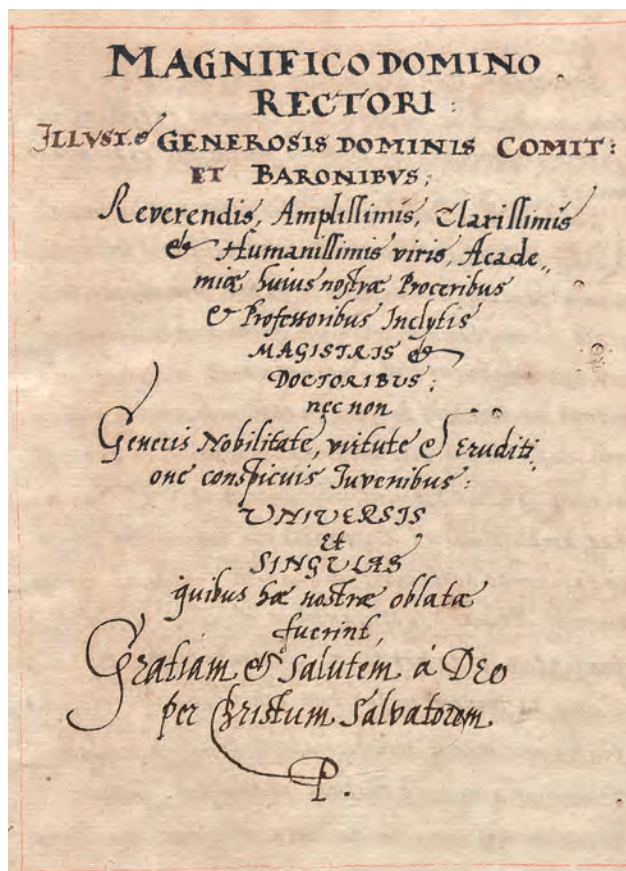 MAGNIFICO DOMINO
RECTORI :
ILLVST. & GENEROSIS DOMINIS COMIT :
ET BARONIBVS ;
Reverendis, Amplissimis, Clarissimis
& Humanissimis viris, Acade„
miæ huius nostræ Proceribus
& Professoribus Inclytis
MAGISTRIS &
DOCTORIBUS ;
nec non
Generis Nobilitate, virtute & Eruditi„
one conspicuis Iuvenibus :
UNIVERSIS
et
SINGULAS
quibus hæ nostræ oblatæ
fuerint,
Gratiam & Salutem á Deo
per Christum Salvatorem
P.